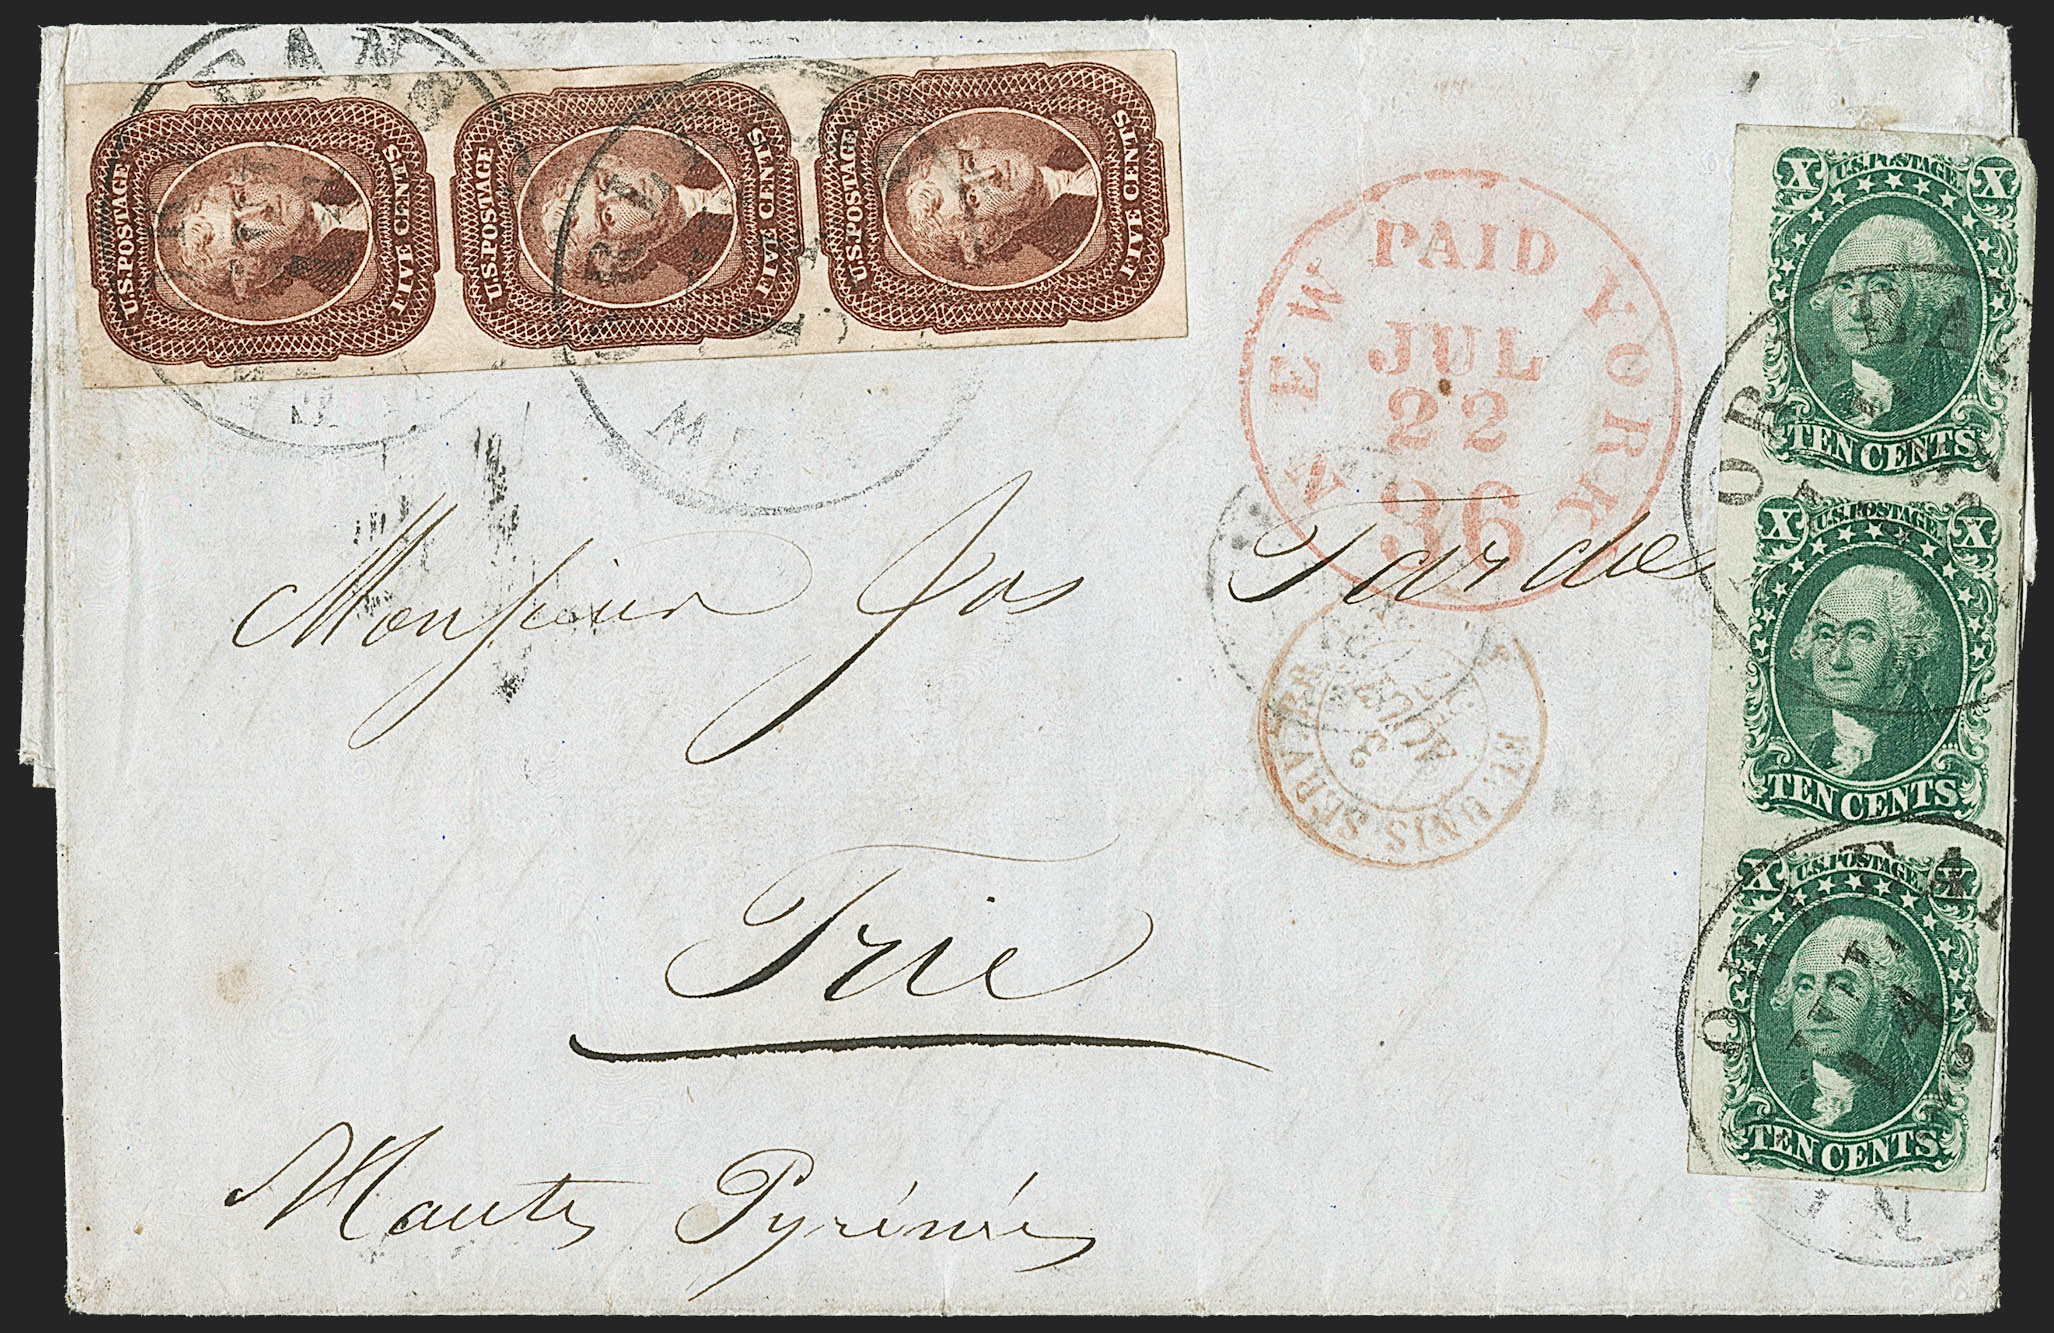 U.S.POSTAGE
FIVE CENTS
U.S.POSTAGE
FIVE CENTS
U.S.POSTAGE
FIVE CENTS
NEW YORK
PAID
JUL
22
36
X U.S.POSTAGE X
TEN CENTS
X U.S.POSTAGE X
TEN CENTS
X U.S.POSTAGE X
TEN CENTS
14
Monsieur Jos Tardos
ET. UNIS SERV.
3
AOUT
57
Trie
Hautes Pyrénées